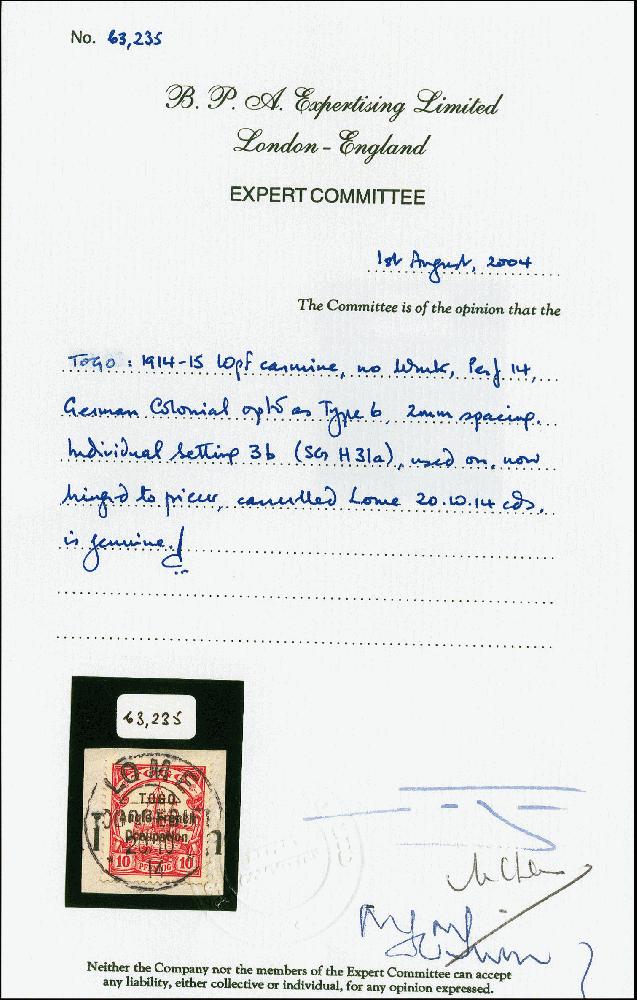 No. 63,235
B. P. A. Expertising Limited
London - England
EXPERT COMMITTEE
1st August, 2004
The Committee is of the opinion that the
TOGO: 1914-15 10pf carmine, no Wmk, Perf 14,
German Colonial optd as Type 6, 2mm spacing.
Individual Setting 3b (SG H31a), used on, now
hinged to piece, cancelled Lome 20.10.14 cds,
is genuine.
63,235
LOME
TOGO
Anglo-French
Occupation
10 PFENNIG 10
Neither the Company nor the members of the Expert Committee can accept
any liability, either collective or individual, for any opinion expressed.